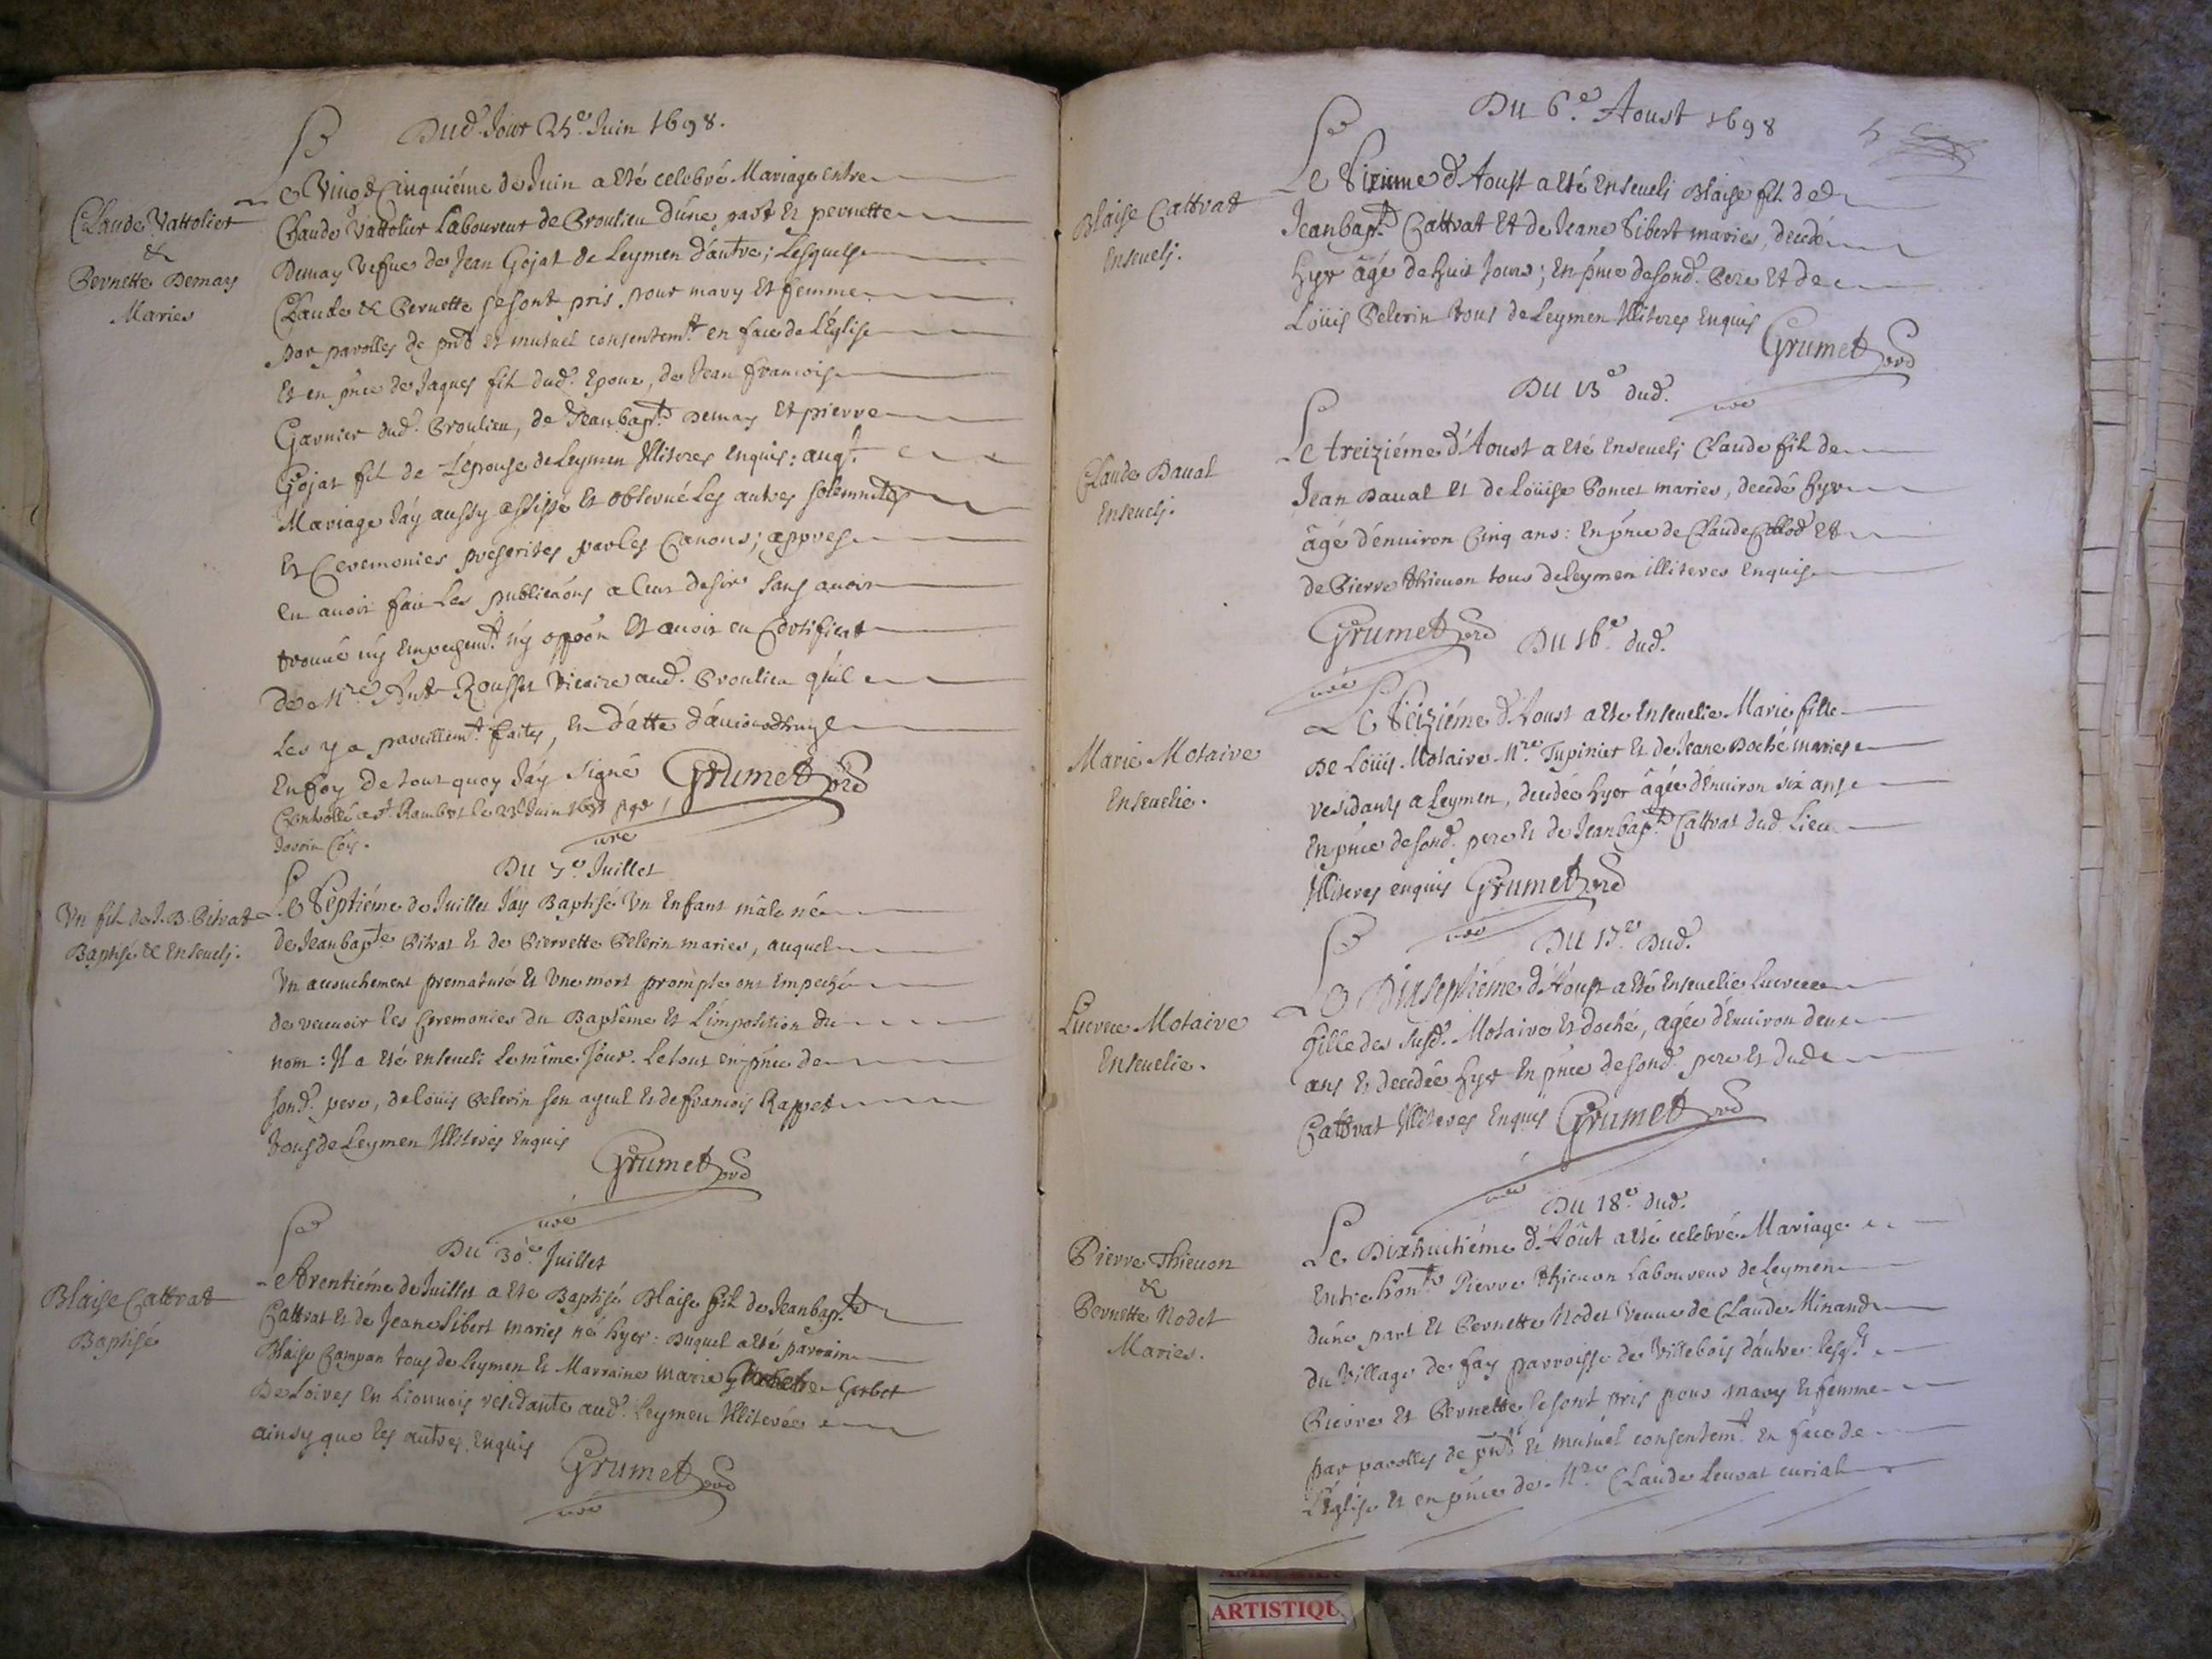 Dud. Jour 25e. Juin 1698.
Claude Vattolier
&
Pernette Demay
Mariés
Le Vingt Cinquiéme de Juin a eté celebré Mariage entre
Claude Vattolier Laboureur de Proulieu d'une part et pernette
Demay Vefue de Jean Gojat de Leymen d'autre; Lesquels
Claude & Pernette se sont pris pour mary et femme
par parolles de pnt et mutuel consentemt. en face de L'Eglise
Et en pnce de Jaques fils dud. Epoux, de Jean francois
Garnier dud. Proulieu, de Jeanbapt. Demay Et pierre
Gojat fils de L'épouse de Leymen Illiteres Enquis: auql.
Mariage J'ay aussy assisté et observé les autres solemnités
Et Ceremonies prescrites par les Canons; apprés
en auoir fait Les publicaõns a leur desir sans auoir
trouué ny Empechemt. ny oppoõn Et auoir eu Certificat
de Mre Ant. Rousset Vicaire aud. Proulieu qu'il
Les y a pareillemt. faites, en datte d'aujourd'huy
En foy de tout quoy J'ay signé Grumet
curé
Controllé a St. Rambert le Juin 1698
Du 7e. Juillet
Un fils de J. B. Pitrat
Baptisé & Enseueli.
Le Septiéme de Juillet J'ay Baptisé Un Enfant mâle né
de Jeanbapte Pitrat et de Pierrette Pelerin mariés, auquel
Un acouchement prematuré et Une mort prompte ont Empeché
de receuoir les Ceremonies du Baptême et L'imposition du
nom: Il a eté enseueli le même Jour. Le tout en pnce de
sond. pere, de Loüis Pelerin son ayeul et de francois Rappet
tous de Leymen Illiteres Enquis
Grumet
curé
Du 30e. Juillet
Blaise Cattrat
Baptisé
Le trentiéme de Juillet a eté Baptisé Blaise fils de Jeanbapt.
Cattrat et de Jeane Sibert mariés né hyer: Duquel a eté parrain
Blaise Campan tous de Leymen et Marraine Marie Gerbet
De Loires En Lionnois residante aud. Leymen Illiterée
ainsy que les autres Enquis
Grumet
curé
Du 6e. Aoust 1698
5
Blaise Cattrat
Enseueli.
Le Sixieme d'Aoust a eté Enseueli Blaise fils de
Jeanbapt. Cattrat Et de Jeane Sibert mariés, decedé
hyer âgé de huit Jours; En pnce de sond. Pere Et de
Loüis Pelerin tous de Leymen Illiteres Enquis
Grumet
curé
Du 13e dud.
Claude Daual
Enseueli.
Le treiziéme d'Aoust a eté Enseueli Claude fils de
Jean Daual et de Loüise Poncet mariés, decedé hyer
âgé d'enuiron Cinq ans: En pnce de Claude Et
de Pierre Thieuon tous de Leymen illiteres Enquis
Grumet
curé
Du 16e dud.
Marie Motaire
Enseuelie.
Le Seiziéme d'Aoust a eté Enseuelie Marie fille
De Loüis Motaire Mre. Tupinier Et de Jeane Doché mariés
residants a Leymen, decedée hyer âgée d'Enuiron six ans
En pnce de sond. pere et de Jeanbapt. Cattrat dud. Lieu
Illiteres enquis Grumet
curé
Du 17e Dud.
Lucrece Motaire
Enseuelie.
Le Dixseptiéme d'Aoust a eté Enseuelie Lucrece
fille des susd. Motaire Et doché, agée d'Enuiron deux
ans et decedée hyer En pnce de sond. pere Et dud.
Cattrat Illiteres Enquis Grumet
curé
Du 18e. dud.
Pierre Thieuon
&
Pernette Nodet
Mariés.
Le Dixhuitiéme d'Aôut a eté celebré Mariage
Entre hont. Pierre Thieuon Laboureur de Leymen
d'une part Et Pernette Nodet Veuue de Claude Minand
du Village de fay parroisse de Villebois d'autre: lesqls.
Pierre Et Pernette se sont pris pour mary Et femme
par parolles de pnt et mutuel consentemt. En face de
L'Eglise Et en pnce de Mre Claude Leurat curial
ARTISTIQU